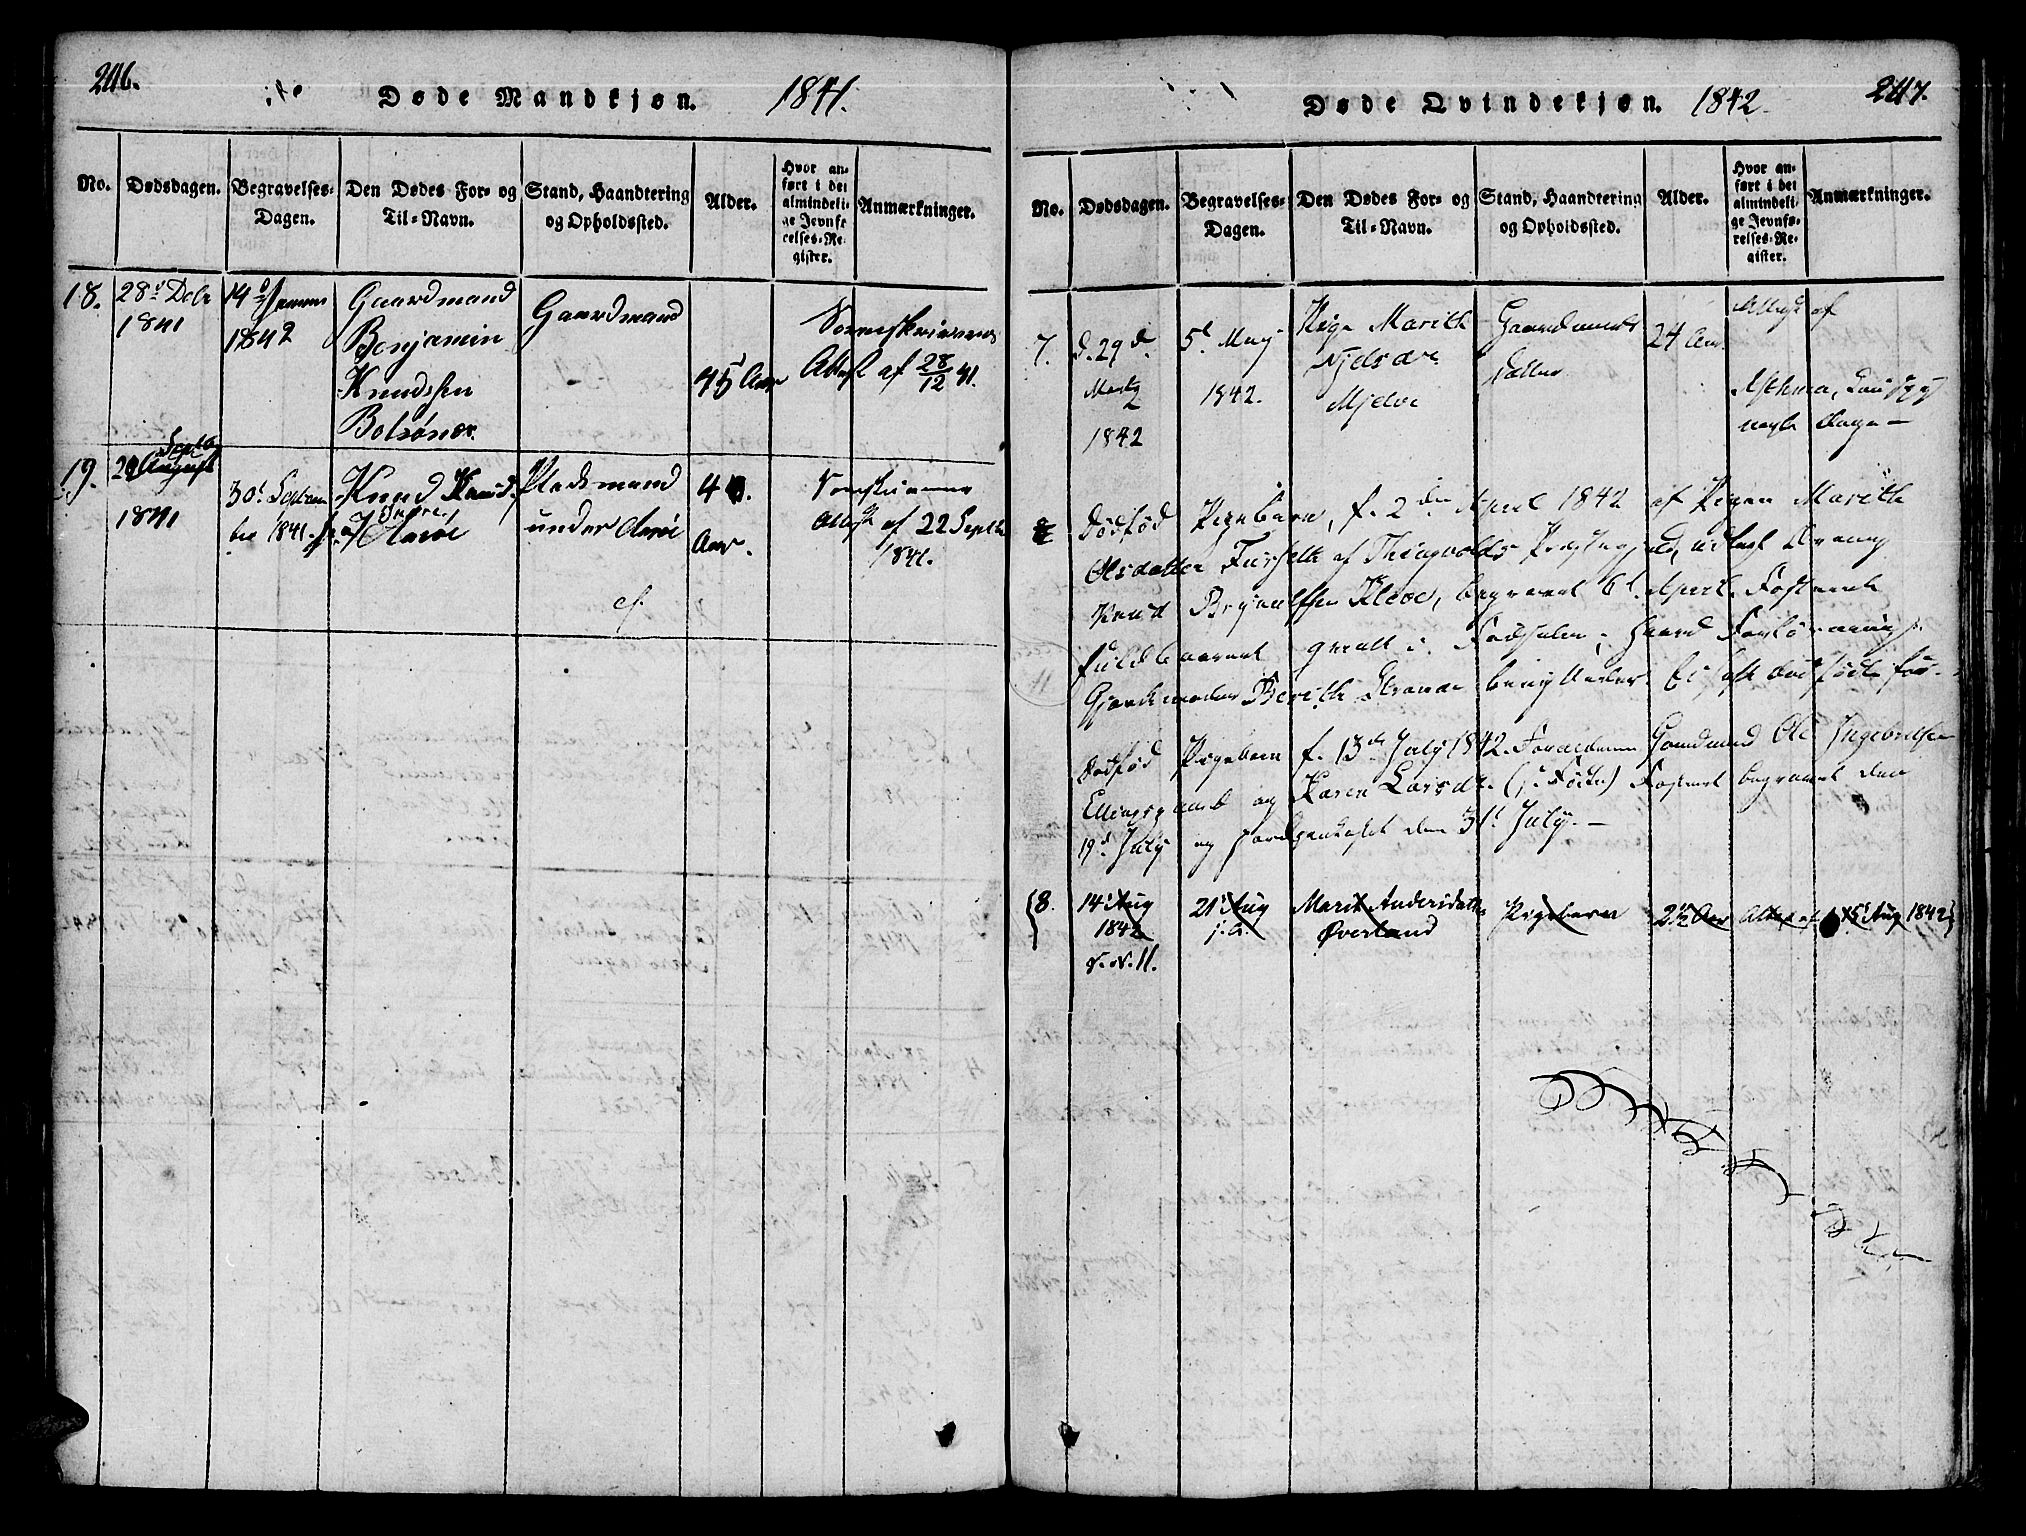 246.
Døde Mandkjøn. 1841.
No. Dødsdagen. Begravelses-Dagen. Den Dødes For- og Til-Navn. Stand, Haandtering og Opholdssted. Alder. Hvor anført i det almindelige Jevnførelses-Register. Anmærkninger.
18. 28d Decbr 1841
14d Januar 1842
Gaardmand
Benjamin
Knudssen
Bolsønæs.
Gaardmand
45 Aar
Sorenskriverens
Attest af 28/12 41.
19. Septbr
1841
30d Septem
ber 1841.
Knud Knud
Indre
Harøe
Pladsmand
under Harøe
40.
Aar.
Attest af 22 Septbr
1841.
cf.
247.
Døde Qvindekjøn. 1842.
No. Dødsdagen. Begravelses-Dagen. Den Dødes For- og Til-Navn. Stand, Haandtering og Opholdssted. Alder. Hvor anført i det almindelige Jevnførelses-Register. Anmærkninger.
7. d. 29d
Martz
1842
5t May
1842.
Pige Marith
Njelsdr.
Mjelve
Gaardmands
Datter
24 Aar
Attest af
Asthma,
nogle Dage —
Dødfød Pigebarn, f. 2den April 1842 af Pigen Marith
Olsdatter Furseth af Thingvolds Præstegjeld, udlagt
Knud Brynjulfsen Kleve, begravet 6t April. Fosteret
fuldbaaret qvalt i Fødselen.
Gjordemoder Berith Strande
Dødfød Pigebarn f. 13de July 1842. Forældrene Gaardmand Ole Ingebretsen
Ellingsgaard og Karen Larsdr. Fosteret begravet den
19d July og Jordpaakastet den 31t July. —
8. 14d Aug
1842
v. N. 11.
21d Aug
s. A.
Marit Andersdatter
Øverland
Pigebarn
2½ Aar
Attest af
15d Aug 1842